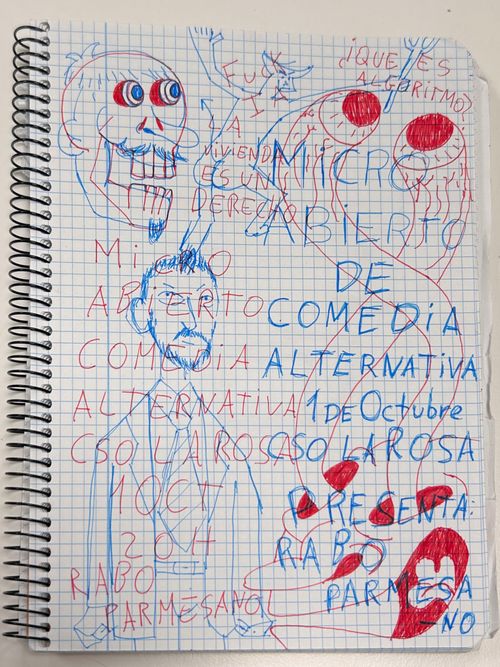 FUCK
IA
¿QUE ES
ALGORITMO?
LA
VIVIENDA
ES UN
DERECHO
MICRO
ABIERTO
DE
COMEDIA
ALTERNATIVA
1 DE Octubre
CSO LA ROSA
PRESENTA:
RABO
PARMESA
-NO
MICRO
ABIERTO
COMEDIA
ALTERNATIVA
CSO LA ROSA
1 OCT
20H
RABO
PARMESANO